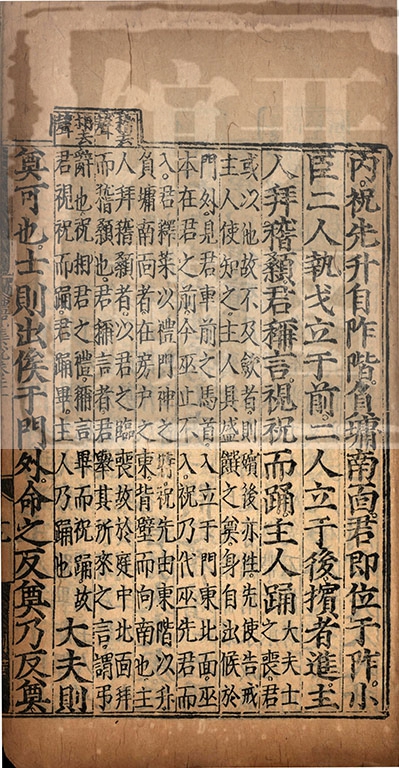 內。祝先升自阼階。負墉南面。君即位于阼。小
臣二人執戈立于前。二人立于後。擯者進。主
人拜稽顙。君稱言。視祝而踊。主人踊
大夫士
之喪君
或以他故不及斂者則殯後亦往先使告戒
主人使知之主人具盛饌之奠身自出候於
門外見君車前之馬首入立于門東北面巫
本在君之前今巫止不入祝乃代巫先君而
入君釋菜以禮門神之時祝先由東階以升
負墉南面者在房戶之東背壁而向南也主
人拜稽顙者以君之臨喪故於庭中北面拜
而稽顙也君稱言者君舉其所來之言謂弔
辭也祝相君之禮稱言畢而祝踊故
君視祝而踊君踊畢主人乃踊也
大夫則
奠可也。士則出俟于門外。命之反奠。乃反奠
稱去聲
相去聲